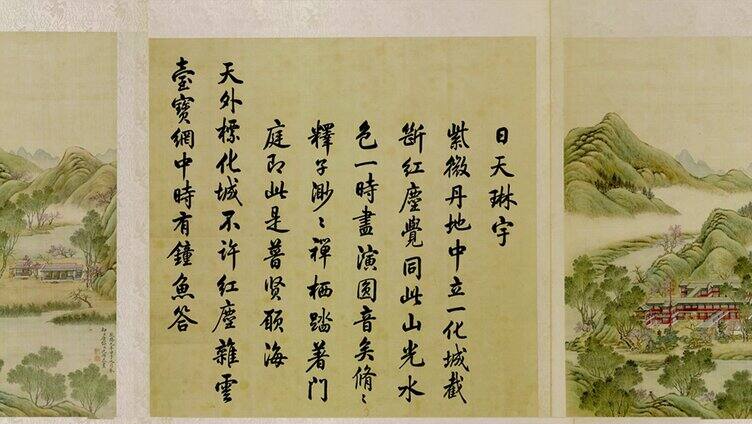 日天琳宇
紫微丹地中立一化城截
斷紅塵覺同此山光水
色一時盡演圓音矣脩々
釋子渺々禪栖踏著門
庭即此是普賢願海
天外標化城不許紅塵雜雲
臺寶網中時有鐘魚答